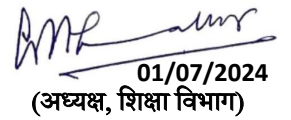 01/07/2024
(अध्यक्ष, शिक्षा विभाग)